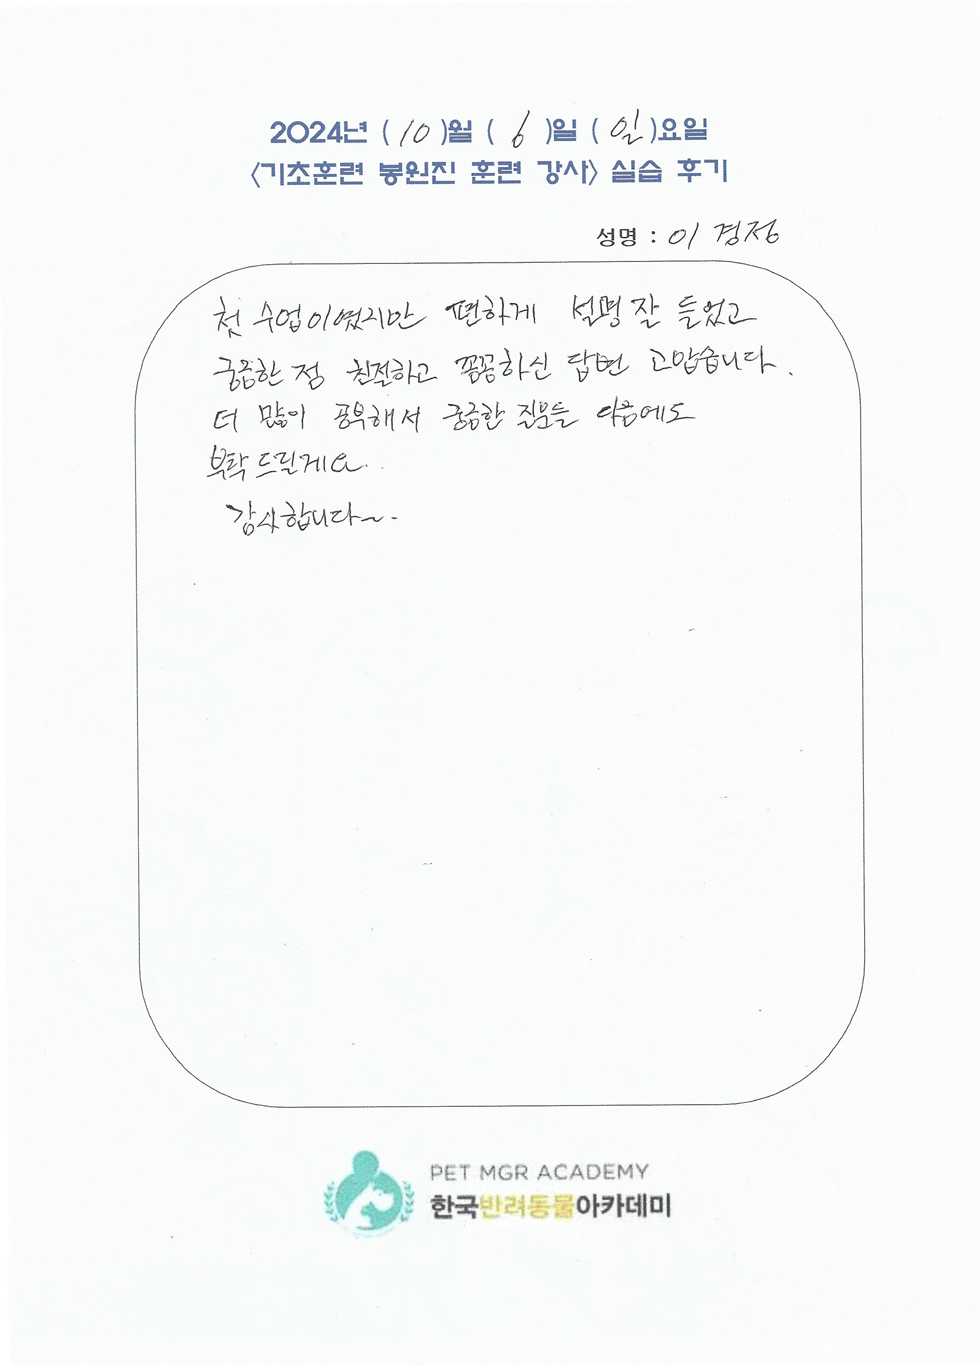 2024년 (10)월 (6)일 (일)요일
<기초훈련 봉원진 훈련 강사> 실습 후기
성명 : 이경정
첫 수업이였지만 편하게 설명 잘 들었고
궁금한 점 친절하고 꼼꼼하신 답변 고맙습니다.
더 많이 공부해서 궁금한 질문들 다음에도
부탁드릴게요..
감사합니다~.
PET MGR ACADEMY
한국반려동물아카데미